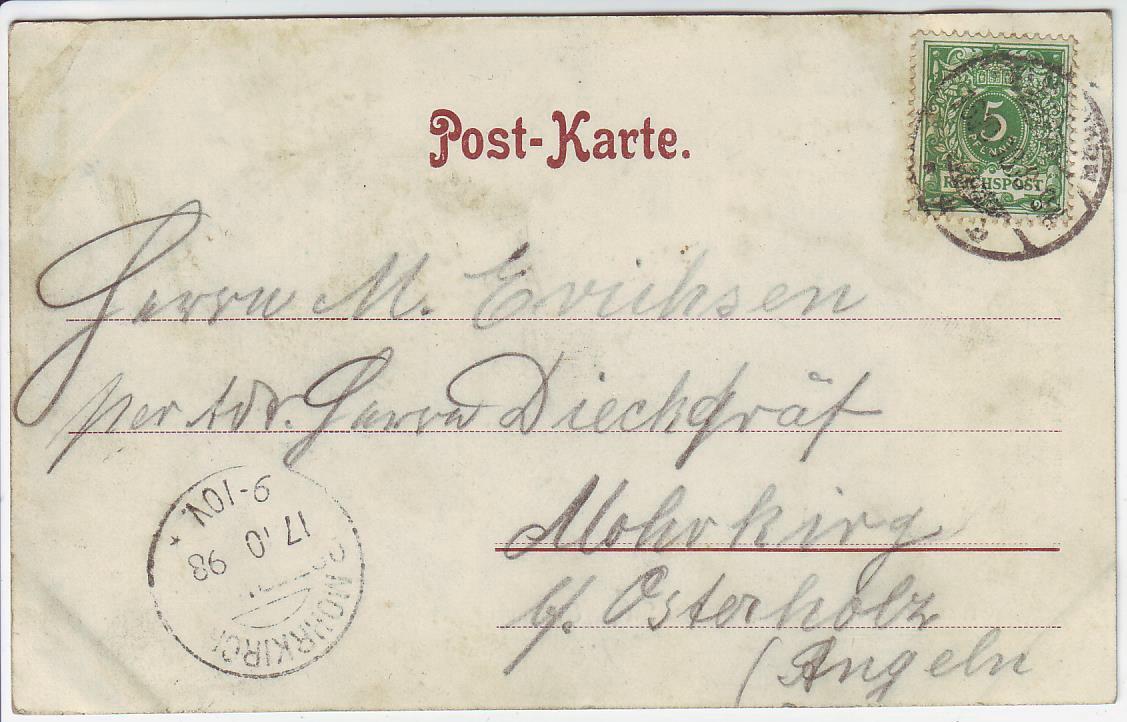 Post-Karte.
5
REICHSPOST
Herrn M. Erichsen
per Adr. Herrn Dieckgräf
Mohrkirg
b/. Osterholz
(Angeln
9-10V.
17 10 98
MOHRKIRCH